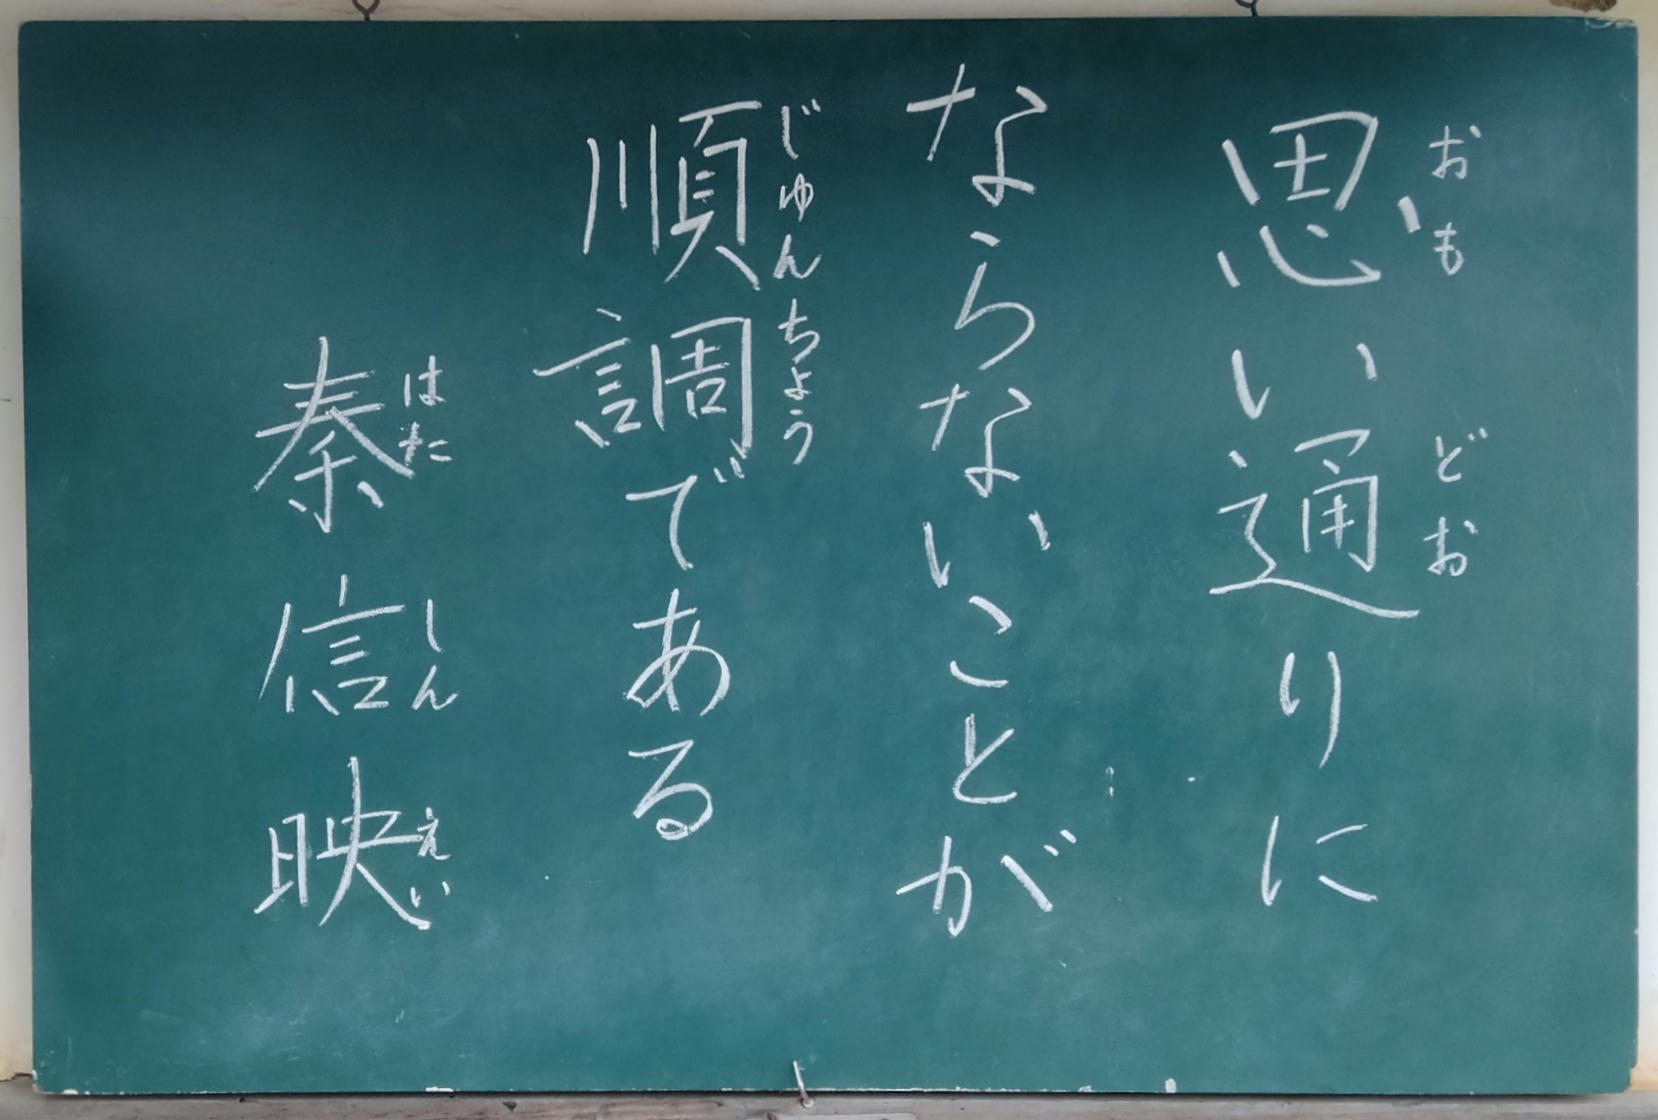 思い通りに
おも どお
ならないことが
順調である
じゅんちょう
秦 信 映
はた しん えい